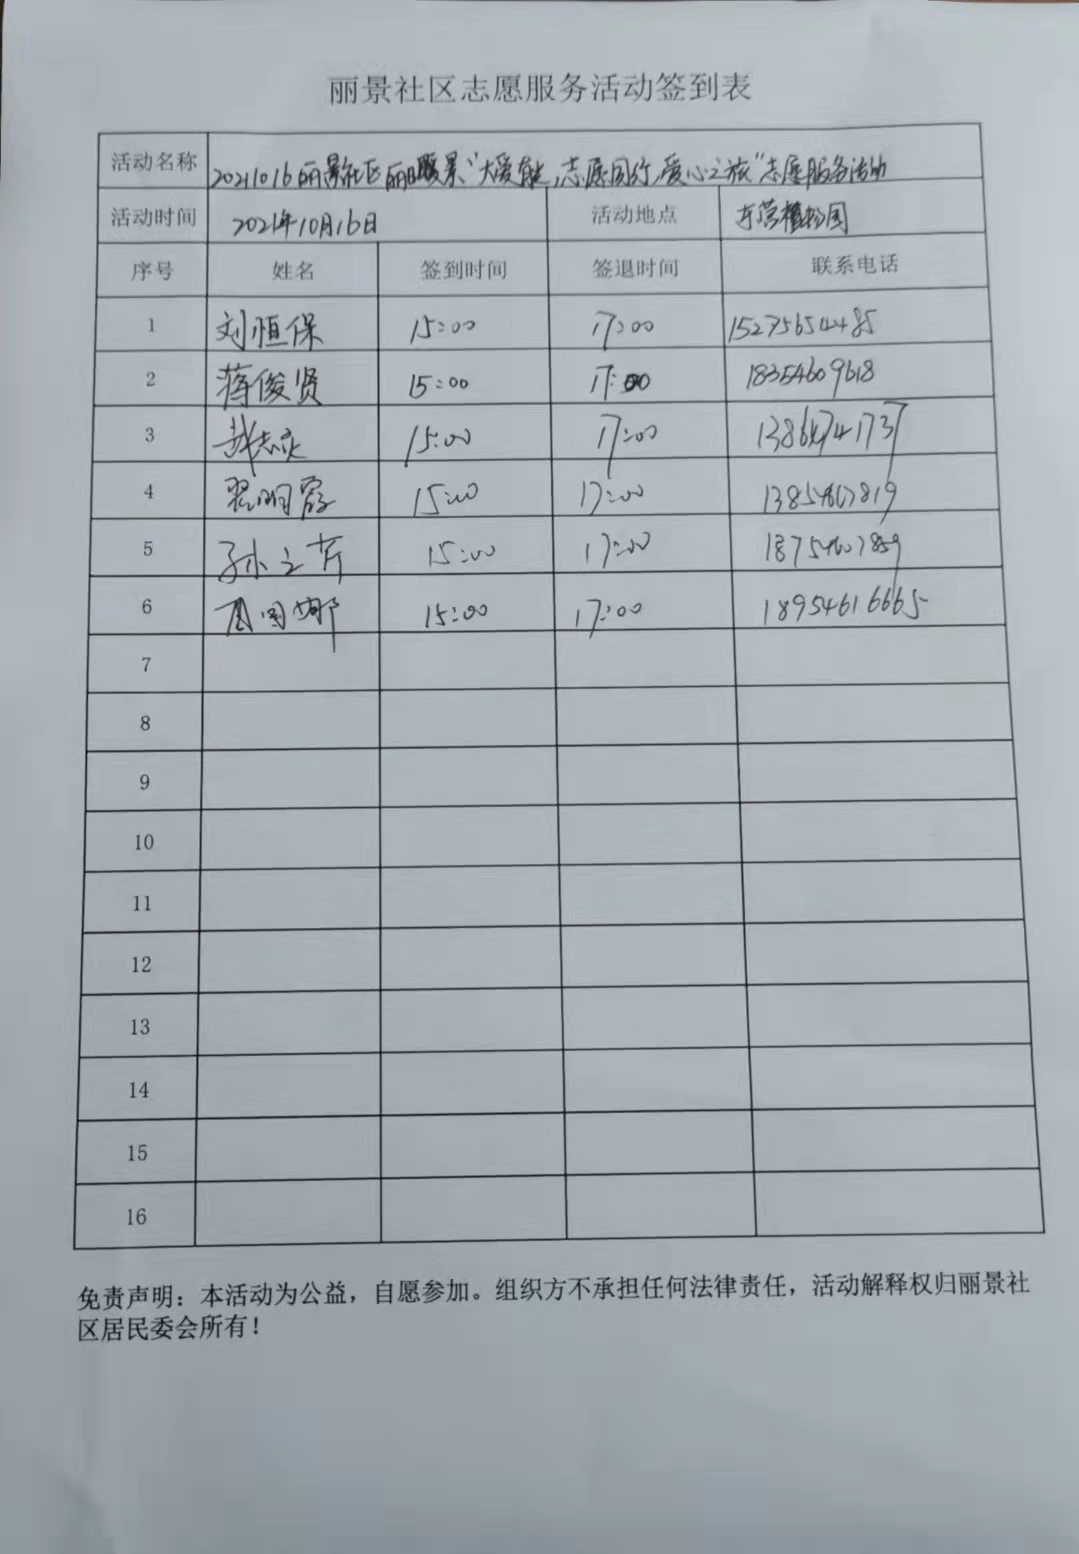 丽景社区志愿服务活动签到表
活动名称 20211016丽景社区丽暖景"大爱 ,志愿同行,爱心之旅"志愿服务活动
活动时间 2021年10月16日 活动地点 东营植物园
序号 姓名 签到时间 签退时间 联系电话
1 刘恒保 15:00 17:00 15275654485
2 蒋俊贤 15:00 17:00 18354609618
3 15:00 17:00 13864741737
4 15:00 17:00
5 孙立芹 15:00 17:00
6 15:00 17:00 18954616665
7
8
9
10
11
12
13
14
15
16
免责声明：本活动为公益，自愿参加。组织方不承担任何法律责任，活动解释权归丽景社
区居民委会所有！